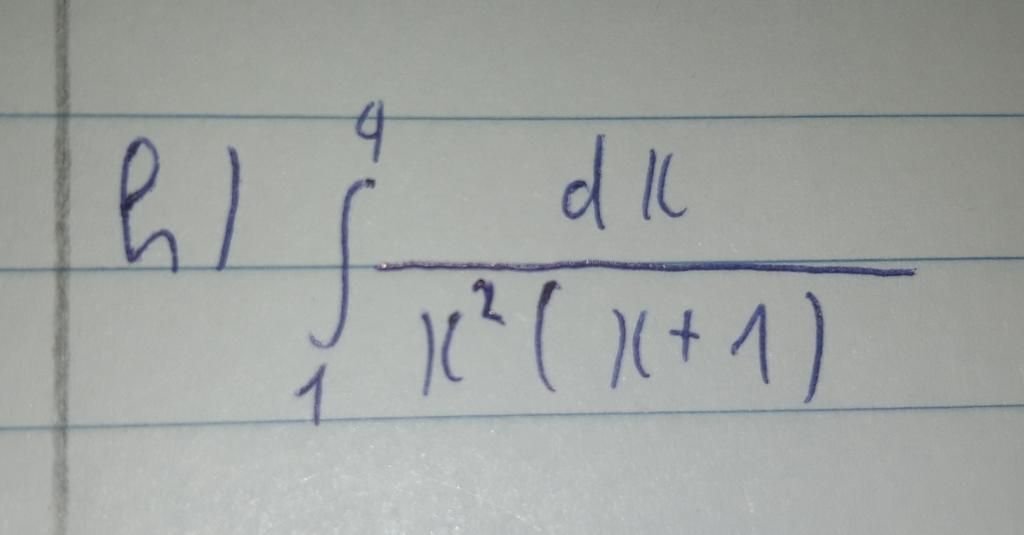 h) ∫₁⁴ dx / x²(x+1)